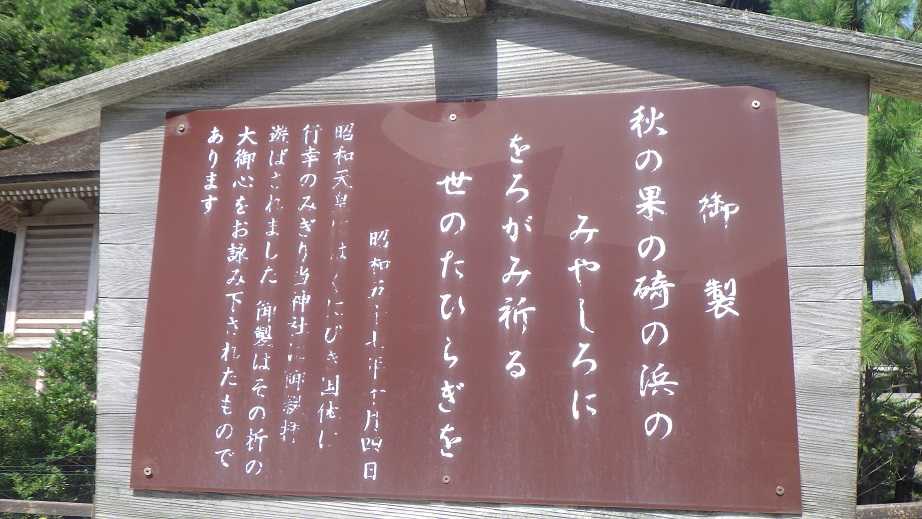 御製
秋の果の碕の浜の
みやしろに
をろがみ祈る
世のたひらぎを
昭和五十七年十月四日
昭和天皇にはくにびき国体に
行幸のみぎり当神社に御親拝
遊ばされました 御製はその折の
大御心をお詠み下されたもので
あります